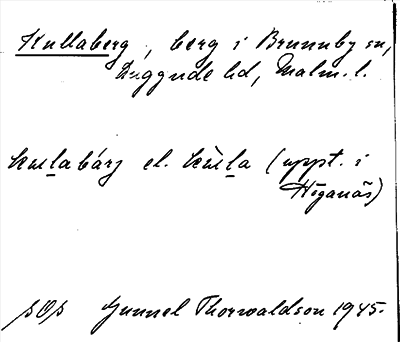 Kullaberg, berg i Brunnby sn,
Luggude hd, Malm. l.
kulabárj el. kùla (uppt. i
Höganäs)
pOp Gunnel Thorwaldson 1945.